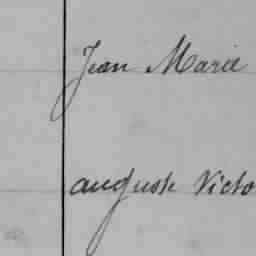 Jean Marie
auguste Victo